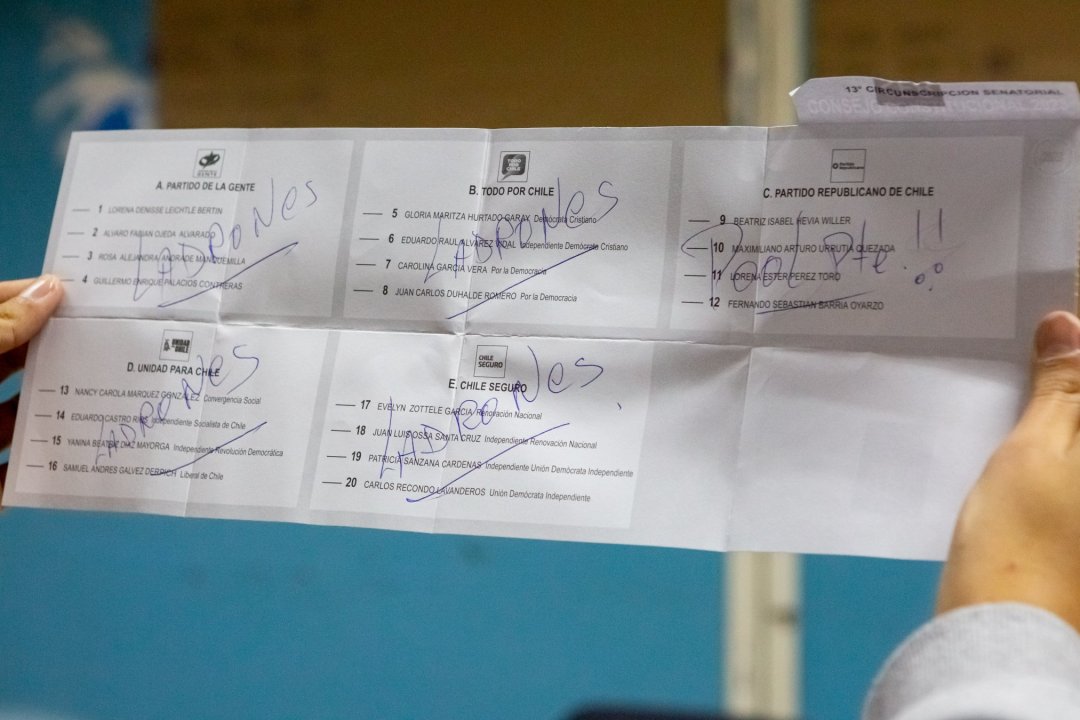 13ª CIRCUNSCRIPCION SENATORIAL
A. PARTIDO DE LA GENTE
1 LORENA DENISSE LEICHTLE BERTIN
2 ALVARO FABIAN OJEDA ALVARADO
3 ROSA ALEJANDRA ANDRADE MANQUEMILLA
4 GUILLERMO ENRIQUE PALACIOS CONTRERAS
LADRONES
TODO POR CHILE
B. TODO POR CHILE
5 GLORIA MARITZA HURTADO GARAY Demócrata Cristiano
6 EDUARDO RAUL ALVAREZ VIDAL Independiente Demócrata Cristiano
7 CAROLINA GARCIA VERA Por la Democracia
8 JUAN CARLOS DUHALDE ROMERO Por la Democracia
LADRONES
Partido Republicano
C. PARTIDO REPUBLICANO DE CHILE
9 BEATRIZ ISABEL HEVIA WILLER
10 MAXIMILIANO ARTURO URRUTIA QUEZADA
11 LORENA ESTER PEREZ TORO
12 FERNANDO SEBASTIAN BARRIA OYARZO
Pte !!
UNIDAD PARA CHILE
D. UNIDAD PARA CHILE
13 NANCY CAROLA MARQUEZ GONZALEZ Convergencia Social
14 EDUARDO CASTRO RIOS Independiente Socialista de Chile
15 YANINA BEATRIZ DIAZ MAYORGA Independiente Revolución Democrática
16 SAMUEL ANDRES GALVEZ DERPICH Liberal de Chile
LADRONES
CHILE SEGURO
E. CHILE SEGURO
17 EVELYN ZOTTELE GARCIA Renovación Nacional
18 JUAN LUIS OSSA SANTA CRUZ Independiente Renovación Nacional
19 PATRICIA SANZANA CARDENAS Independiente Unión Demócrata Independiente
20 CARLOS RECONDO LAVANDEROS Unión Demócrata Independiente
LADRONES